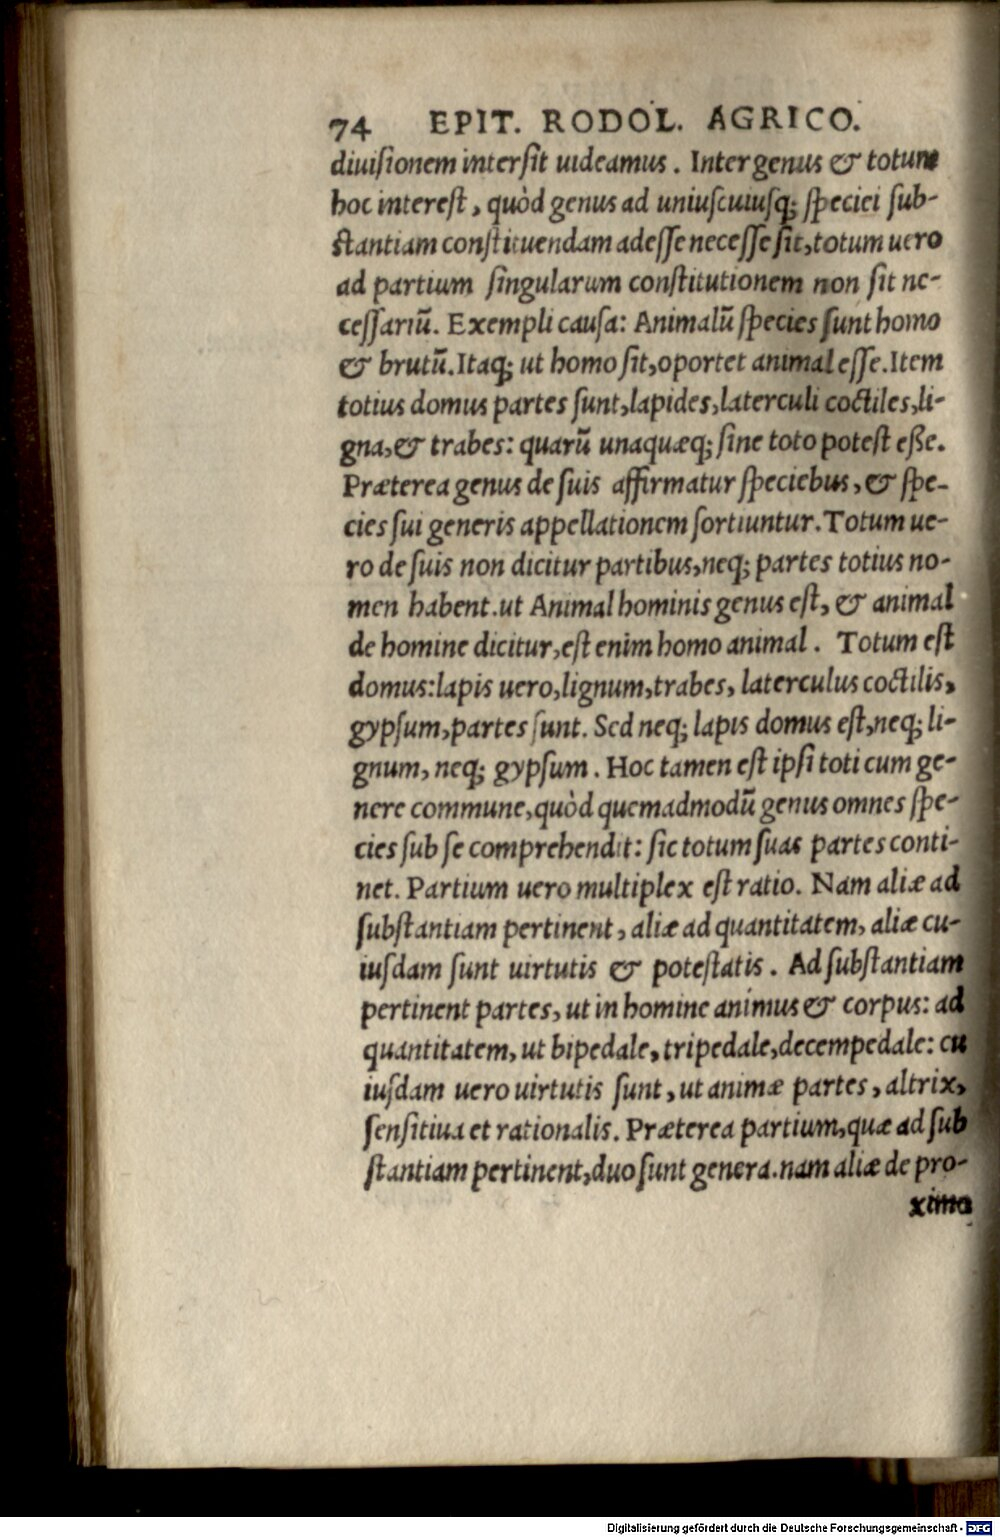 74 EPIT. RODOL. AGRICO.
diuisionem intersit uideamus. Inter genus & totum
hoc interest, quòd genus ad uniuscuiusq; speciei sub-
stantiam constituendam adesse necesse sit, totum uero
ad partium singularum constitutionem non sit ne-
cessariũ. Exempli causa: Animalũ species sunt homo
& brutũ. Itaq; ut homo sit, oportet animal esse. Item
totius domus partes sunt, lapides, laterculi coctiles, li-
gna, & trabes: quarũ unaquæq; sine toto potest eße.
Præterea genus de suis affirmatur speciebus, & spe-
cies sui generis appellationem sortiuntur. Totum ue-
ro de suis non dicitur partibus, neq; partes totius no-
men habent. ut Animal hominis genus est, & animal
de homine dicitur, est enim homo animal. Totum est
domus: lapis uero, lignum, trabes, laterculus coctilis,
gypsum, partes sunt. Sed neq; lapis domus est, neq; li-
gnum, neq; gypsum. Hoc tamen est ipsi toti cum ge-
nere commune, quòd quemadmodũ genus omnes spe-
cies sub se comprehendit: sic totum suas partes conti-
net. Partium uero multiplex est ratio. Nam aliæ ad
substantiam pertinent, aliæ ad quantitatem, aliæ cu-
iusdam sunt uirtutis & potestatis. Ad substantiam
pertinent partes, ut in homine animus & corpus: ad
quantitatem, ut bipedale, tripedale, decempedale: cu
iusdam uero uirtutis sunt, ut animæ partes, altrix,
sensitiua et rationalis. Præterea partium, quæ ad sub
stantiam pertinent, duo sunt genera. nam aliæ de pro-
xima
Digitalisierung gefördert durch die Deutsche Forschungsgemeinschaft - DFG